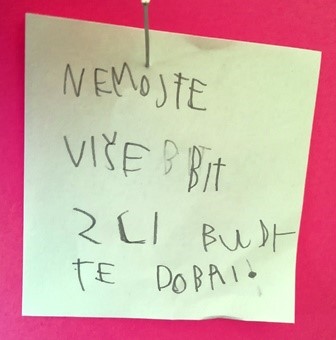 NEMOJTE
VIŠE BIT
ZLI BUDI
TE DOBRI!